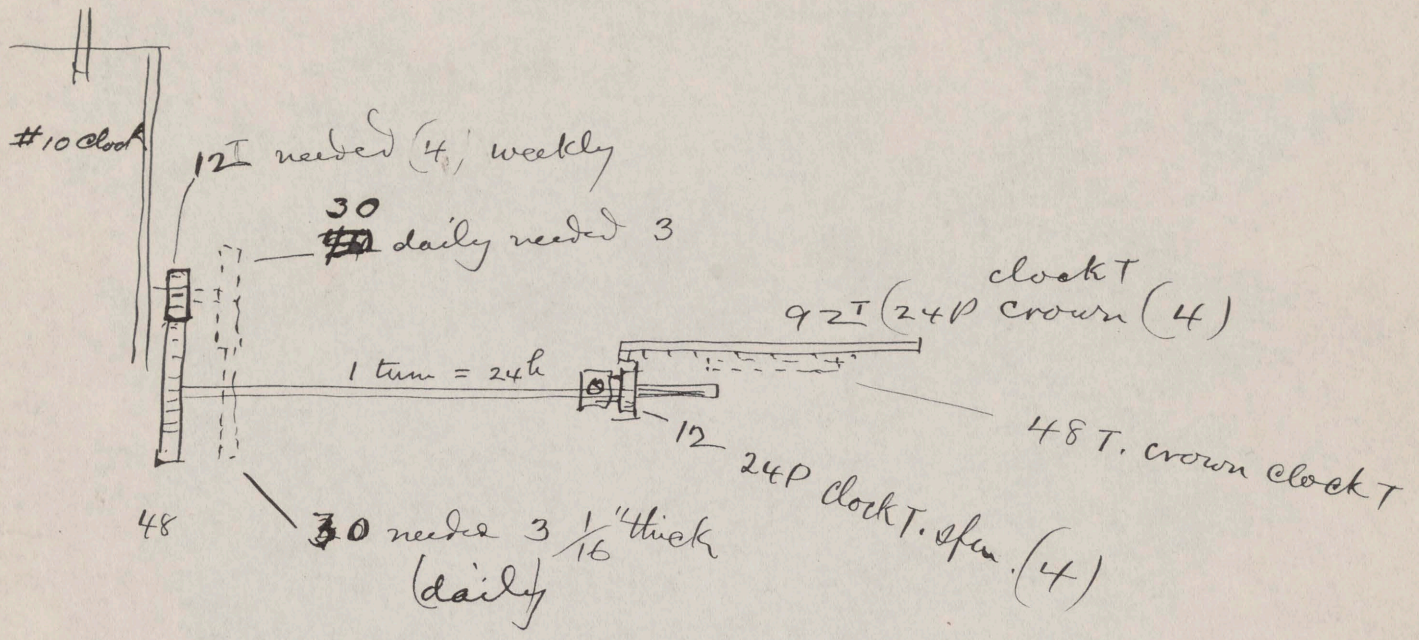 #10 clock
12T needed (4) weekly
30
daily needed 3
clock T
92T (24P crown (4)
1 turn = 24h
12
48 T. crown clock T
24P clock T. (4)
48
30 needed 3 1/16" thick
(daily)